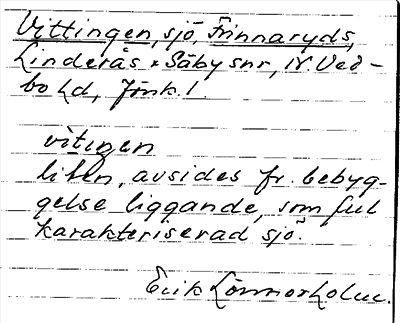 Vittingen, sjö, Frinnaryds,
Linderås o Säby snr, N. Ved-
bo hd, Jönk. l.
vitıŋen
liten, avsides fr. bebyg-
gelse liggande, som ful
karakteriserad sjö.
Erik Lönnerholm.